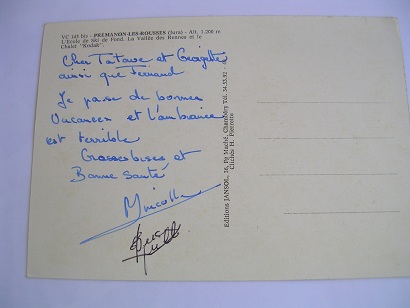 VC 145 bis - PRÉMANON-LES-ROUSSES (Jura) - Alt. 1.200 m
L'Ecole de Ski de Fond. La Vallée des Rennes et le
Chalet "Kodak".
Cher Tatave et Georgette
ainsi que Fernand
Je passe de bonnes
Vacances et l'ambiance
est terrible
Grosses bises et
Bonne Santé
Editions JANSOL, 36, Pg Maché, Chambéry Tél. 34.53.82
Clichés H. Pierrette